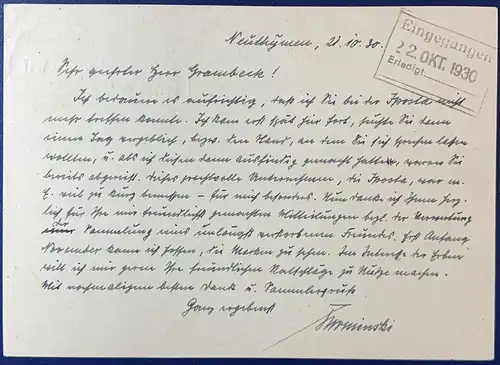 Neuthymen, 21.10.30.
Eingegangen
22. OKT. 1930
Erledigt
Sehr geehrter Herr Grambeck!
Ich bedaure es aufrichtig, daß ich Sie bei der Iposta nicht
mehr treffen konnte. Ich kam erst spät hin fort, suchte Sie dann
einen Tag vergeblich, bezw. den Stand, an dem Sie sich sprechen lassen
wollten, u. als ich diesen dann ausfindig gemacht hatte, waren Sie
bereits abgereist. Dieses prachtvolle Unternehmen, die Iposta, war m.
E. viel zu kurz bemessen – für mich besonders. Nun danke ich Ihnen herz-
lich für Ihre mir freundlichst gemachten Mitteilungen bezgl. der Verwertung
der Sammlung eines unlängst verstorbenen Freundes. Erst Anfang
November kann ich hoffen, die Marken zu sehen. Im Interesse der Erben
will ich mir gern Ihre freundlichen Ratschläge zu Nutze machen.
Mit nochmaligem besten Dank u. Sammlergruß
Ganz ergebenst